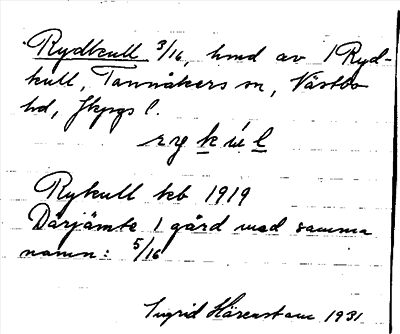 Rydkull 3/16, hmd av 1 Ryd-
kull, Tannåkers sn, Västbo
hd, Jkpgs l.
rykul
Rykull kb 1919
Därjämte 1 gård med samma
namn: 5/16
Ingrid Härenstam 1931